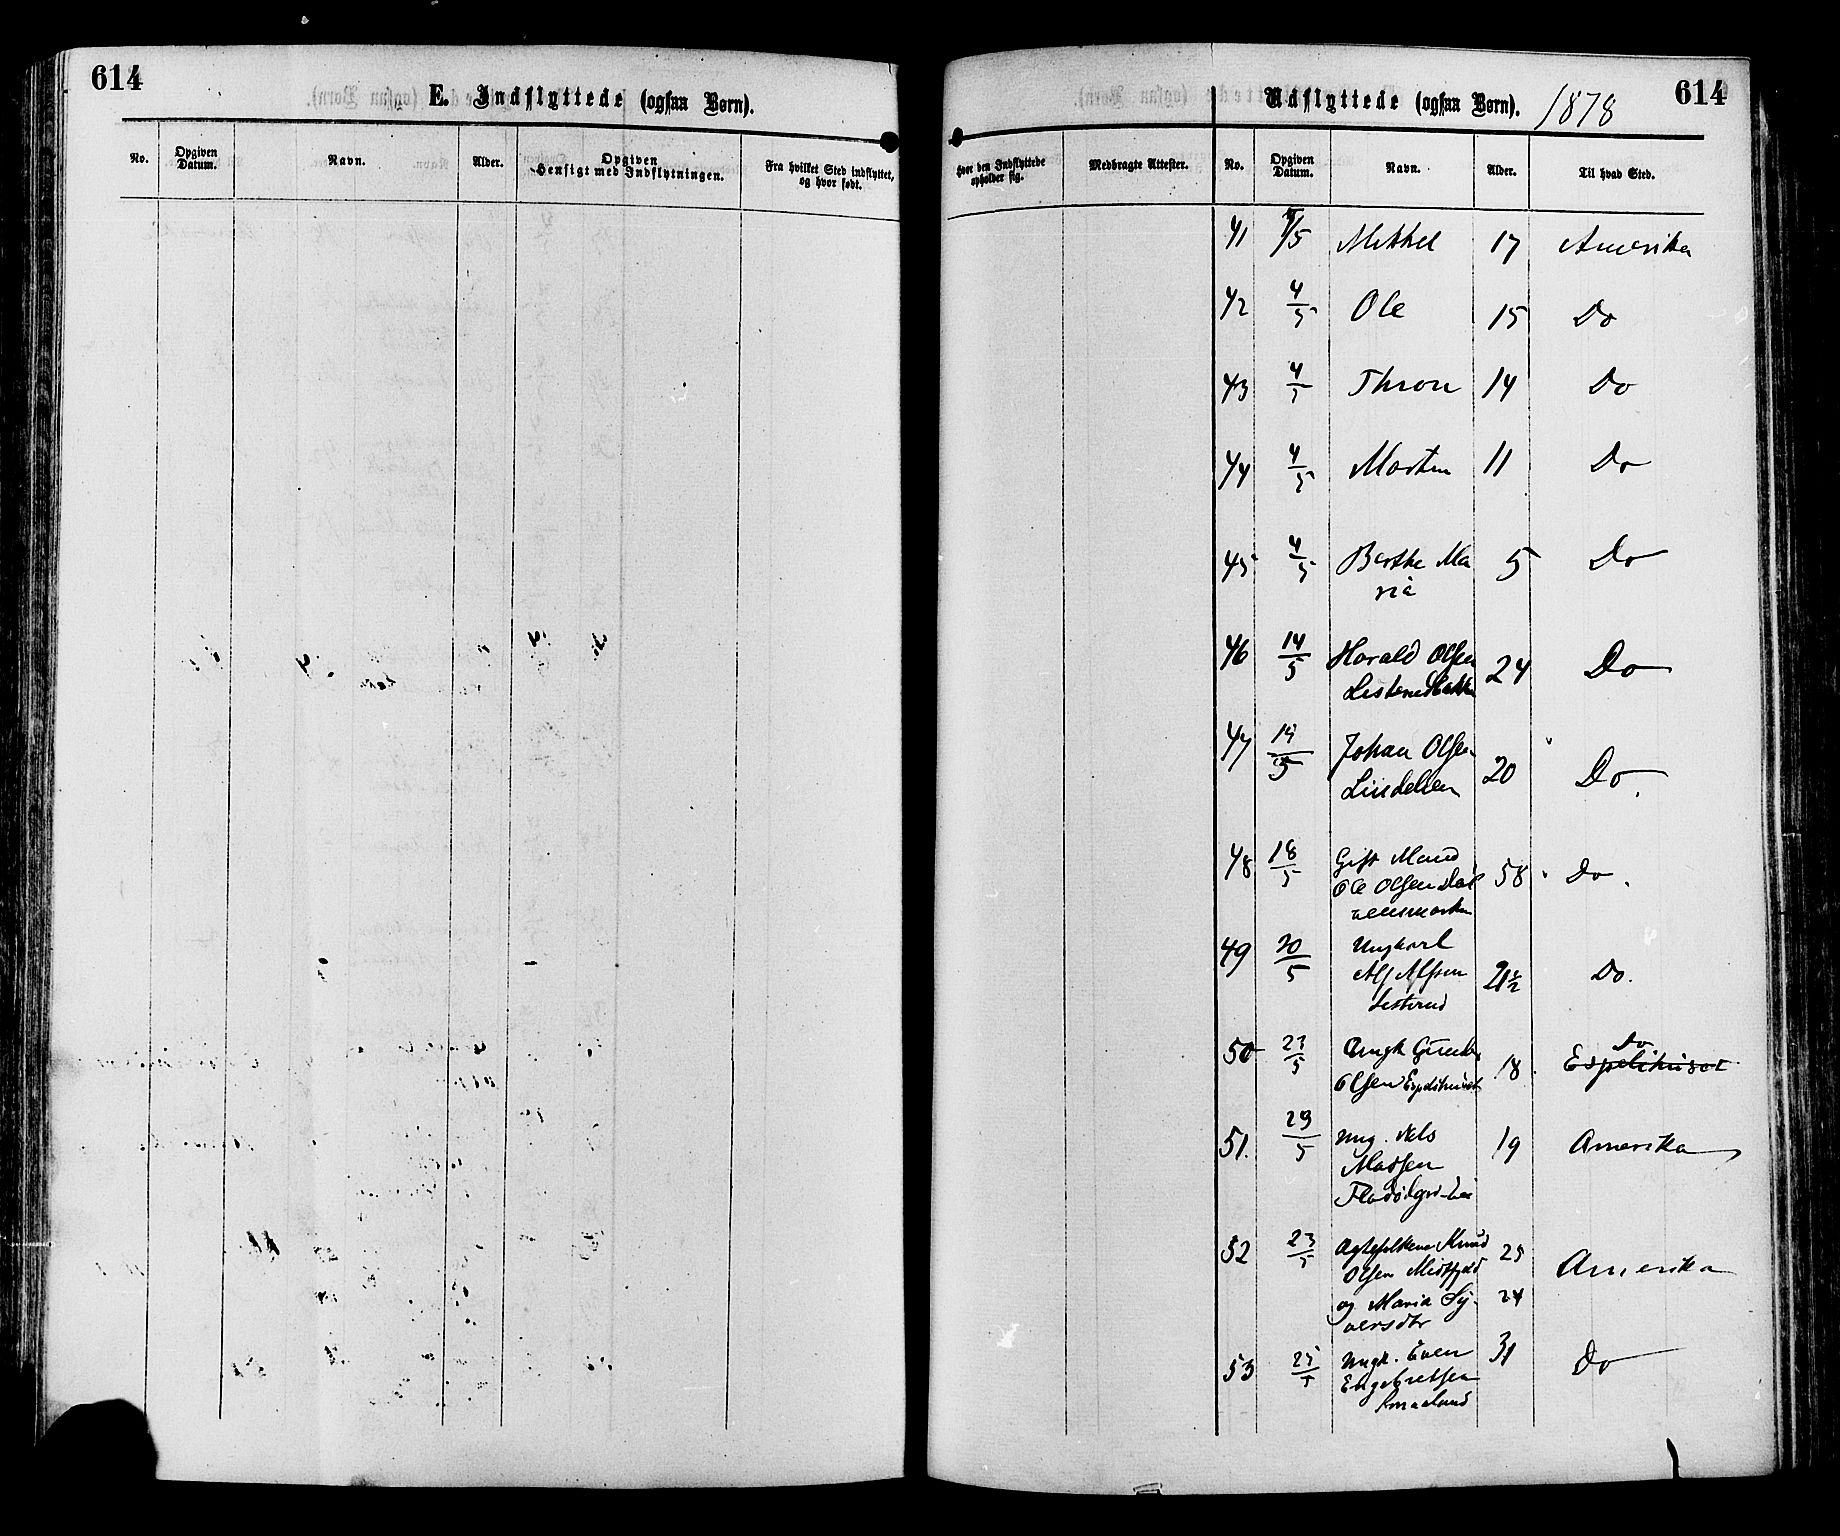 614
E. Indflyttede (ogsaa Børn).
No.
Opgiven Datum.
Navn.
Alder.
Opgiven Hensigt med Indflytningen.
Fra hvilket Sted indflyttet, og hvor født.
Udflyttede (ogsaa Børn). 1878
614
Hvor den Indflyttede opholder sig.
Medbragte Attester.
No.
Opgiven Datum.
Navn.
Alder.
Til hvad Sted.
41 4/5 Mikkel 17 Amerika
42 4/5 Ole 15 Do
43 4/5 Thron 14 Do
44 4/5 Morten 11 Do
45 4/5 Berthe Ma
ria 5 Do
46 14/5 Harald Olsen
24 Do
47 14/5 Johan Olsen
Lindelien 20 Do.
48 18/5 Gift Mand
Ole Olsen Dal
58 Do.
49 20/5 Ungkarl
Alf Alfsen
Lesterud 21 1/2 Do.
50 23/5 Ungk Gunder Do
Olsen Espelihuset 18 Espelihuset
51. 23/5 Ung. Nels 19 Amerika
Madsen
52 23/5 Ægtefolkene Knud 25
Olsen Midtfjeld Amerika
og Maria Sy- 24
versdtr
53 25/5 Ungk. Even 31 Do
Engebretsen